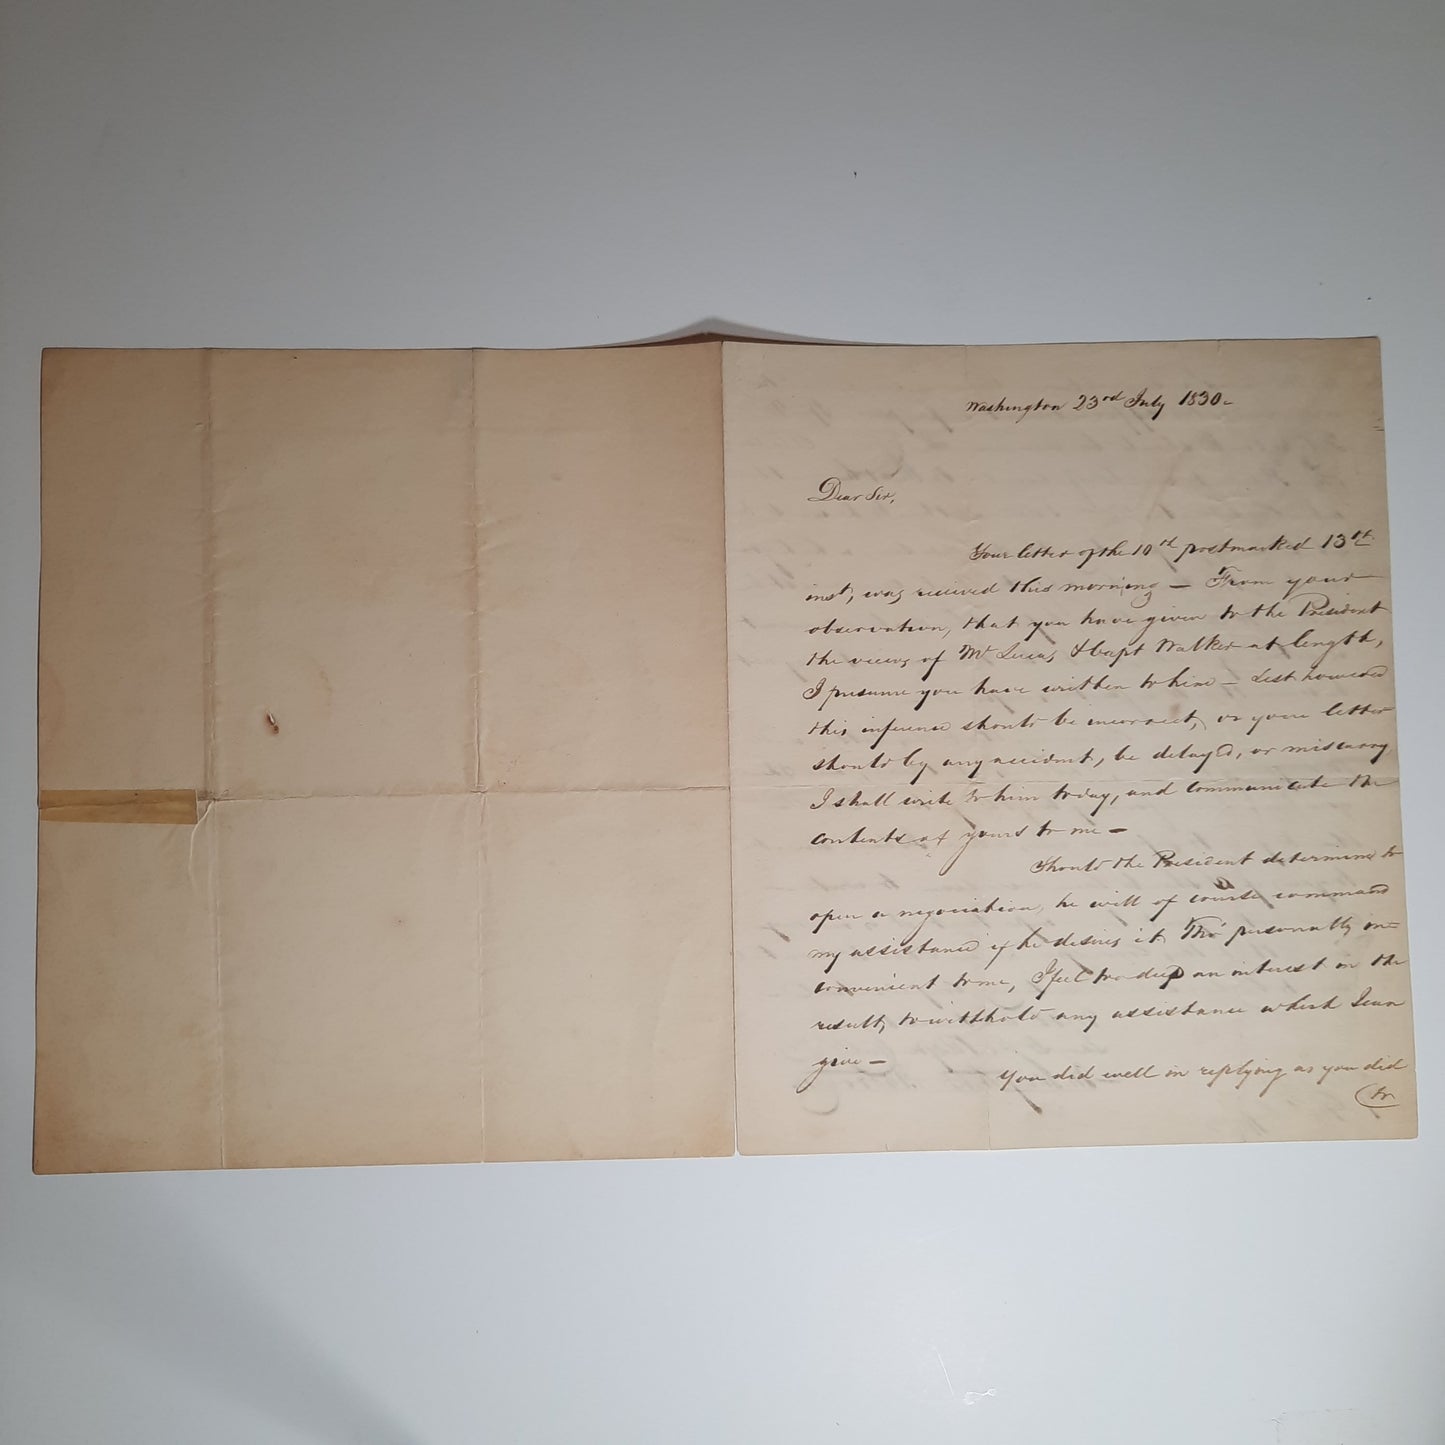 Washington 23rd July 1830.
Dear Sir,
Your letter of the 10th postmarked 13th
inst, was received this morning — From your
observation, that you have given to the President
the views of Mr Lucas & Capt Walker at length,
I presume you have written to him — Lest however
this inference should be incorrect, or your letter
should by any accident, be delayed, or miscarry,
I shall write to him today, and communicate the
contents of yours to me —
Should the President determine to
open a negociation, he will of course command
my assistance if he desires it, Tho' personally in=
convenient to me, I feel too deep an interest in the
result, to withhold any assistance which I can
give —
You did well in replying as you did
to